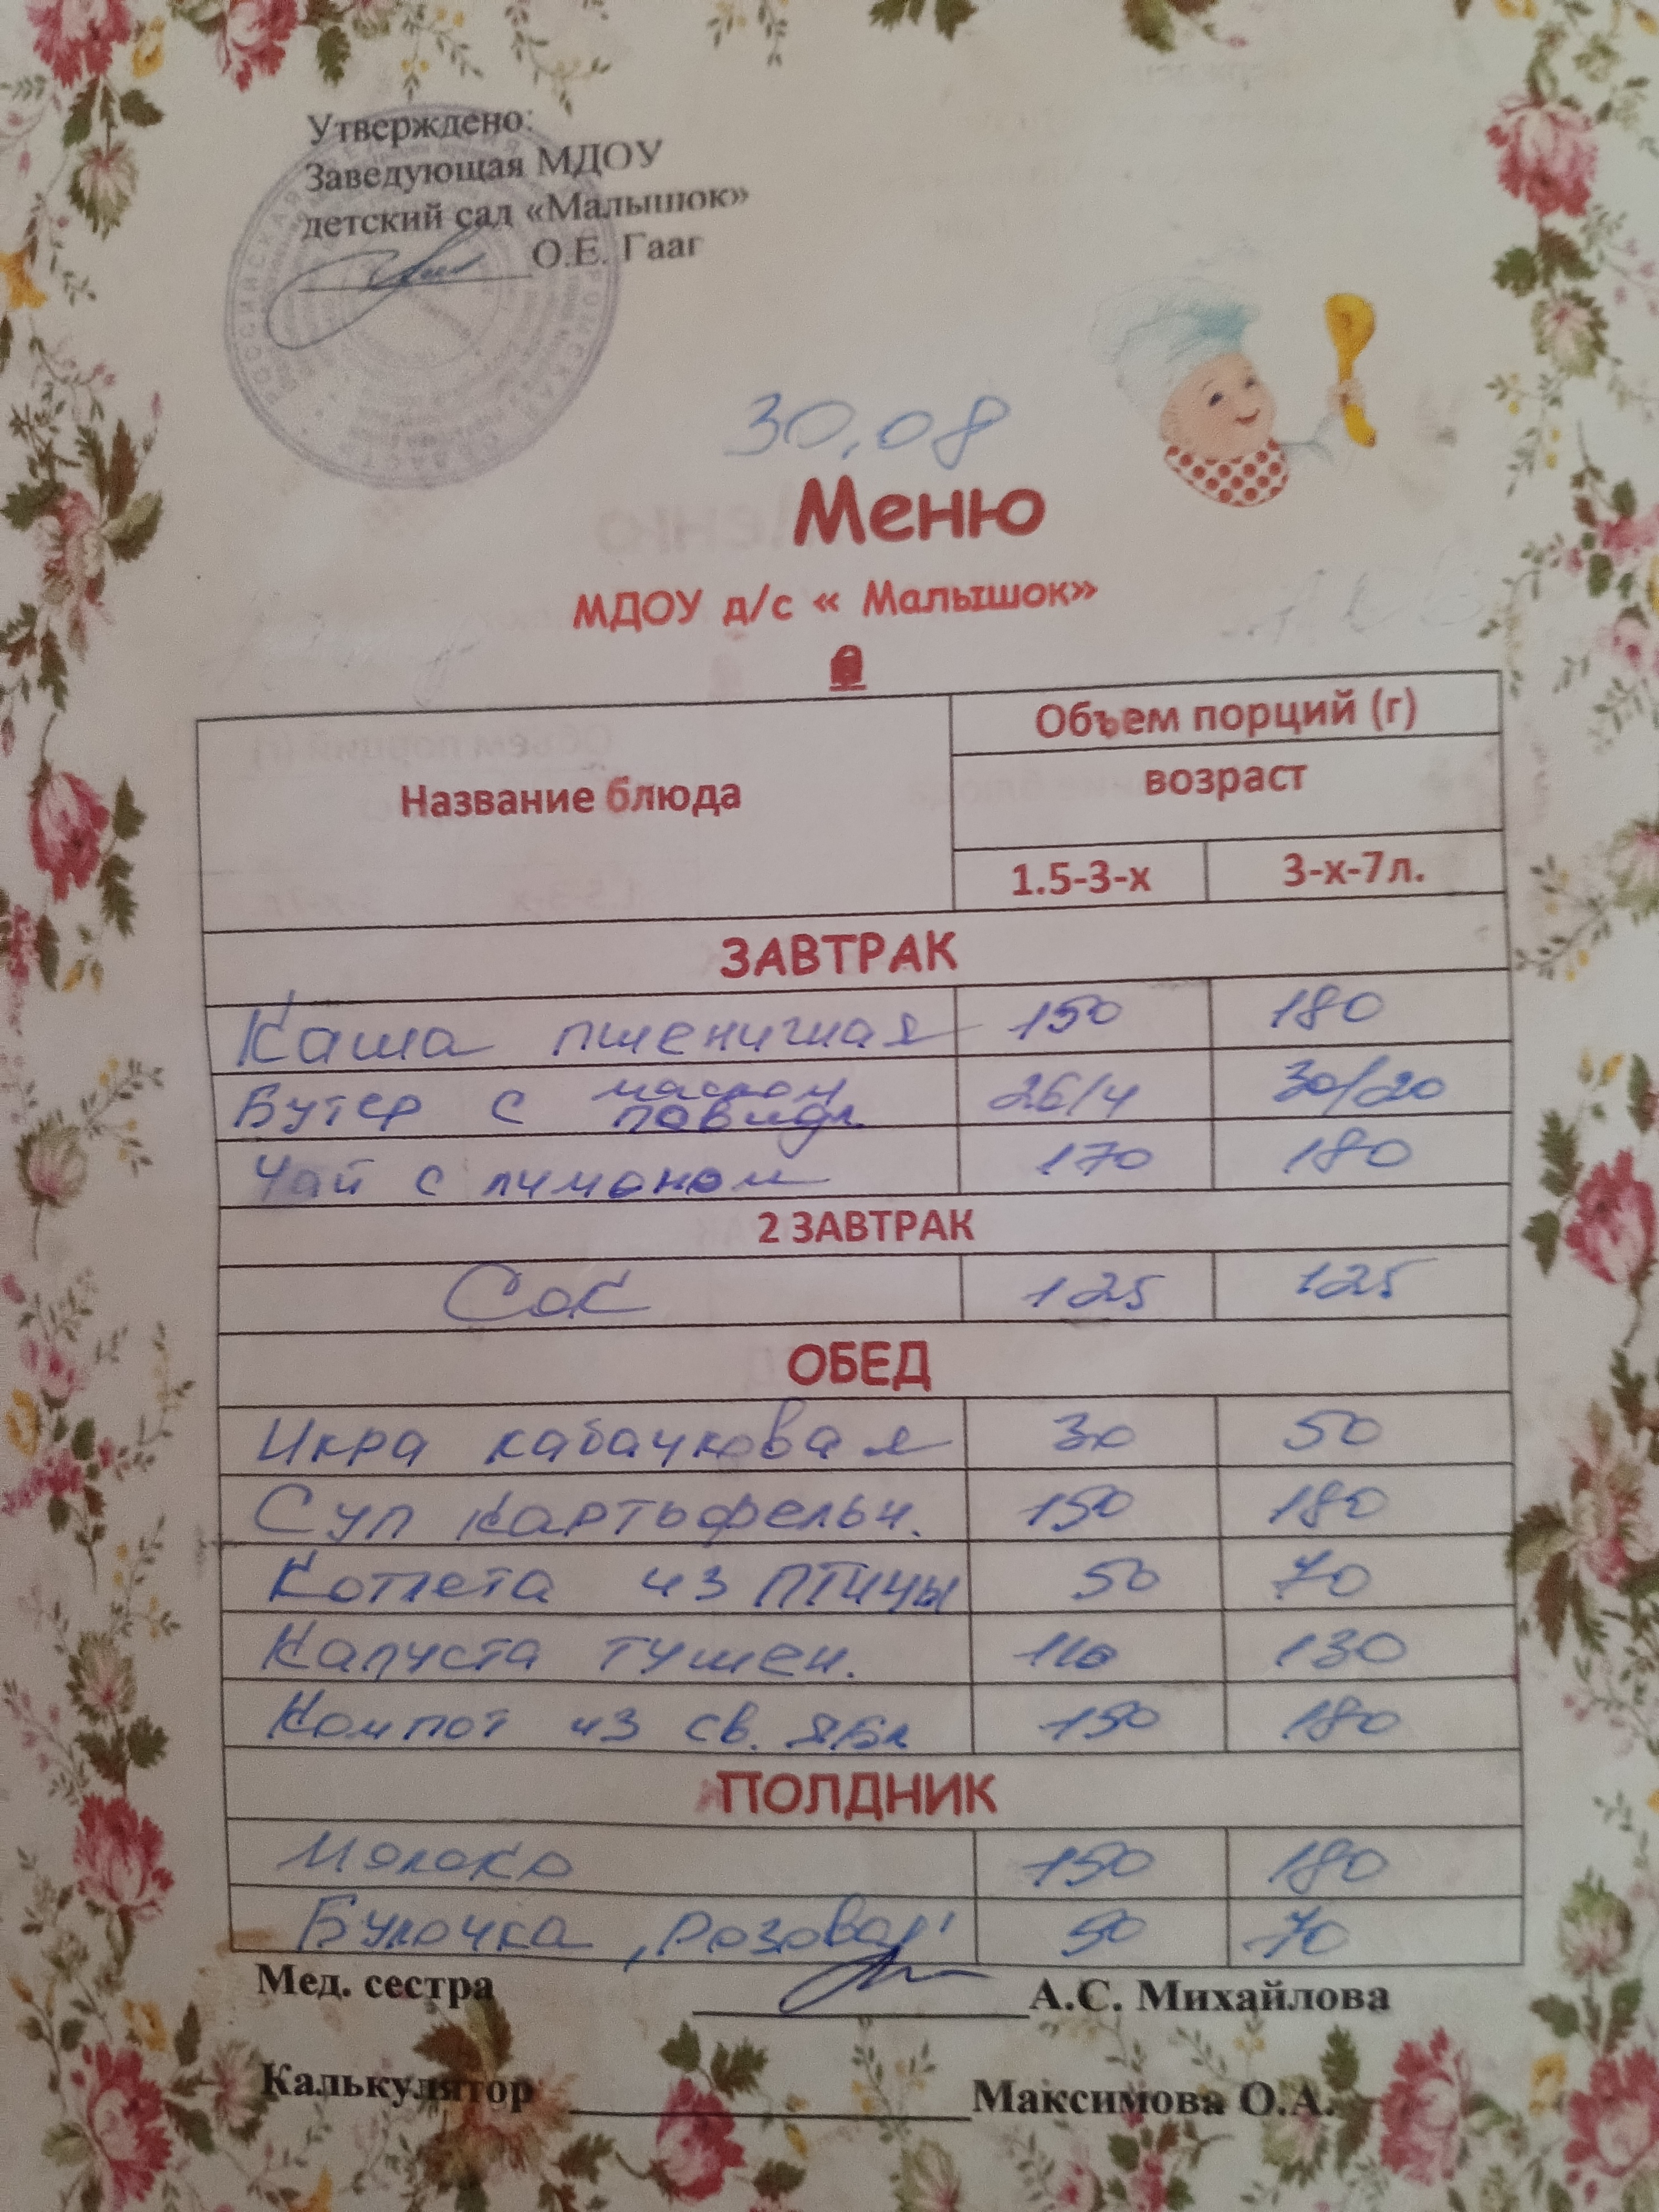 Утверждено:
Заведующая МДОУ
детский сад «Малышок»
О.Е. Гааг
30.08
Меню
МДОУ д/с « Малышок»
Название блюда
Объем порций (г)
возраст
1.5-3-х 3-х-7л.
ЗАВТРАК
Каша пшеничная 150 180
Бутер с маслом повидл. 26/4 30/20
Чай с лимоном 170 180
2 ЗАВТРАК
Сок 125 125
ОБЕД
Икра кабачковая 30 50
Суп картофельн. 150 180
Котлета из птицы 50 70
Капуста тушен. 110 130
Компот из св. ябл 150 180
ПОЛДНИК
Молоко 150 180
Булочка "Розовая" 50 70
Мед. сестра А.С. Михайлова
Калькулятор Максимова О.А.